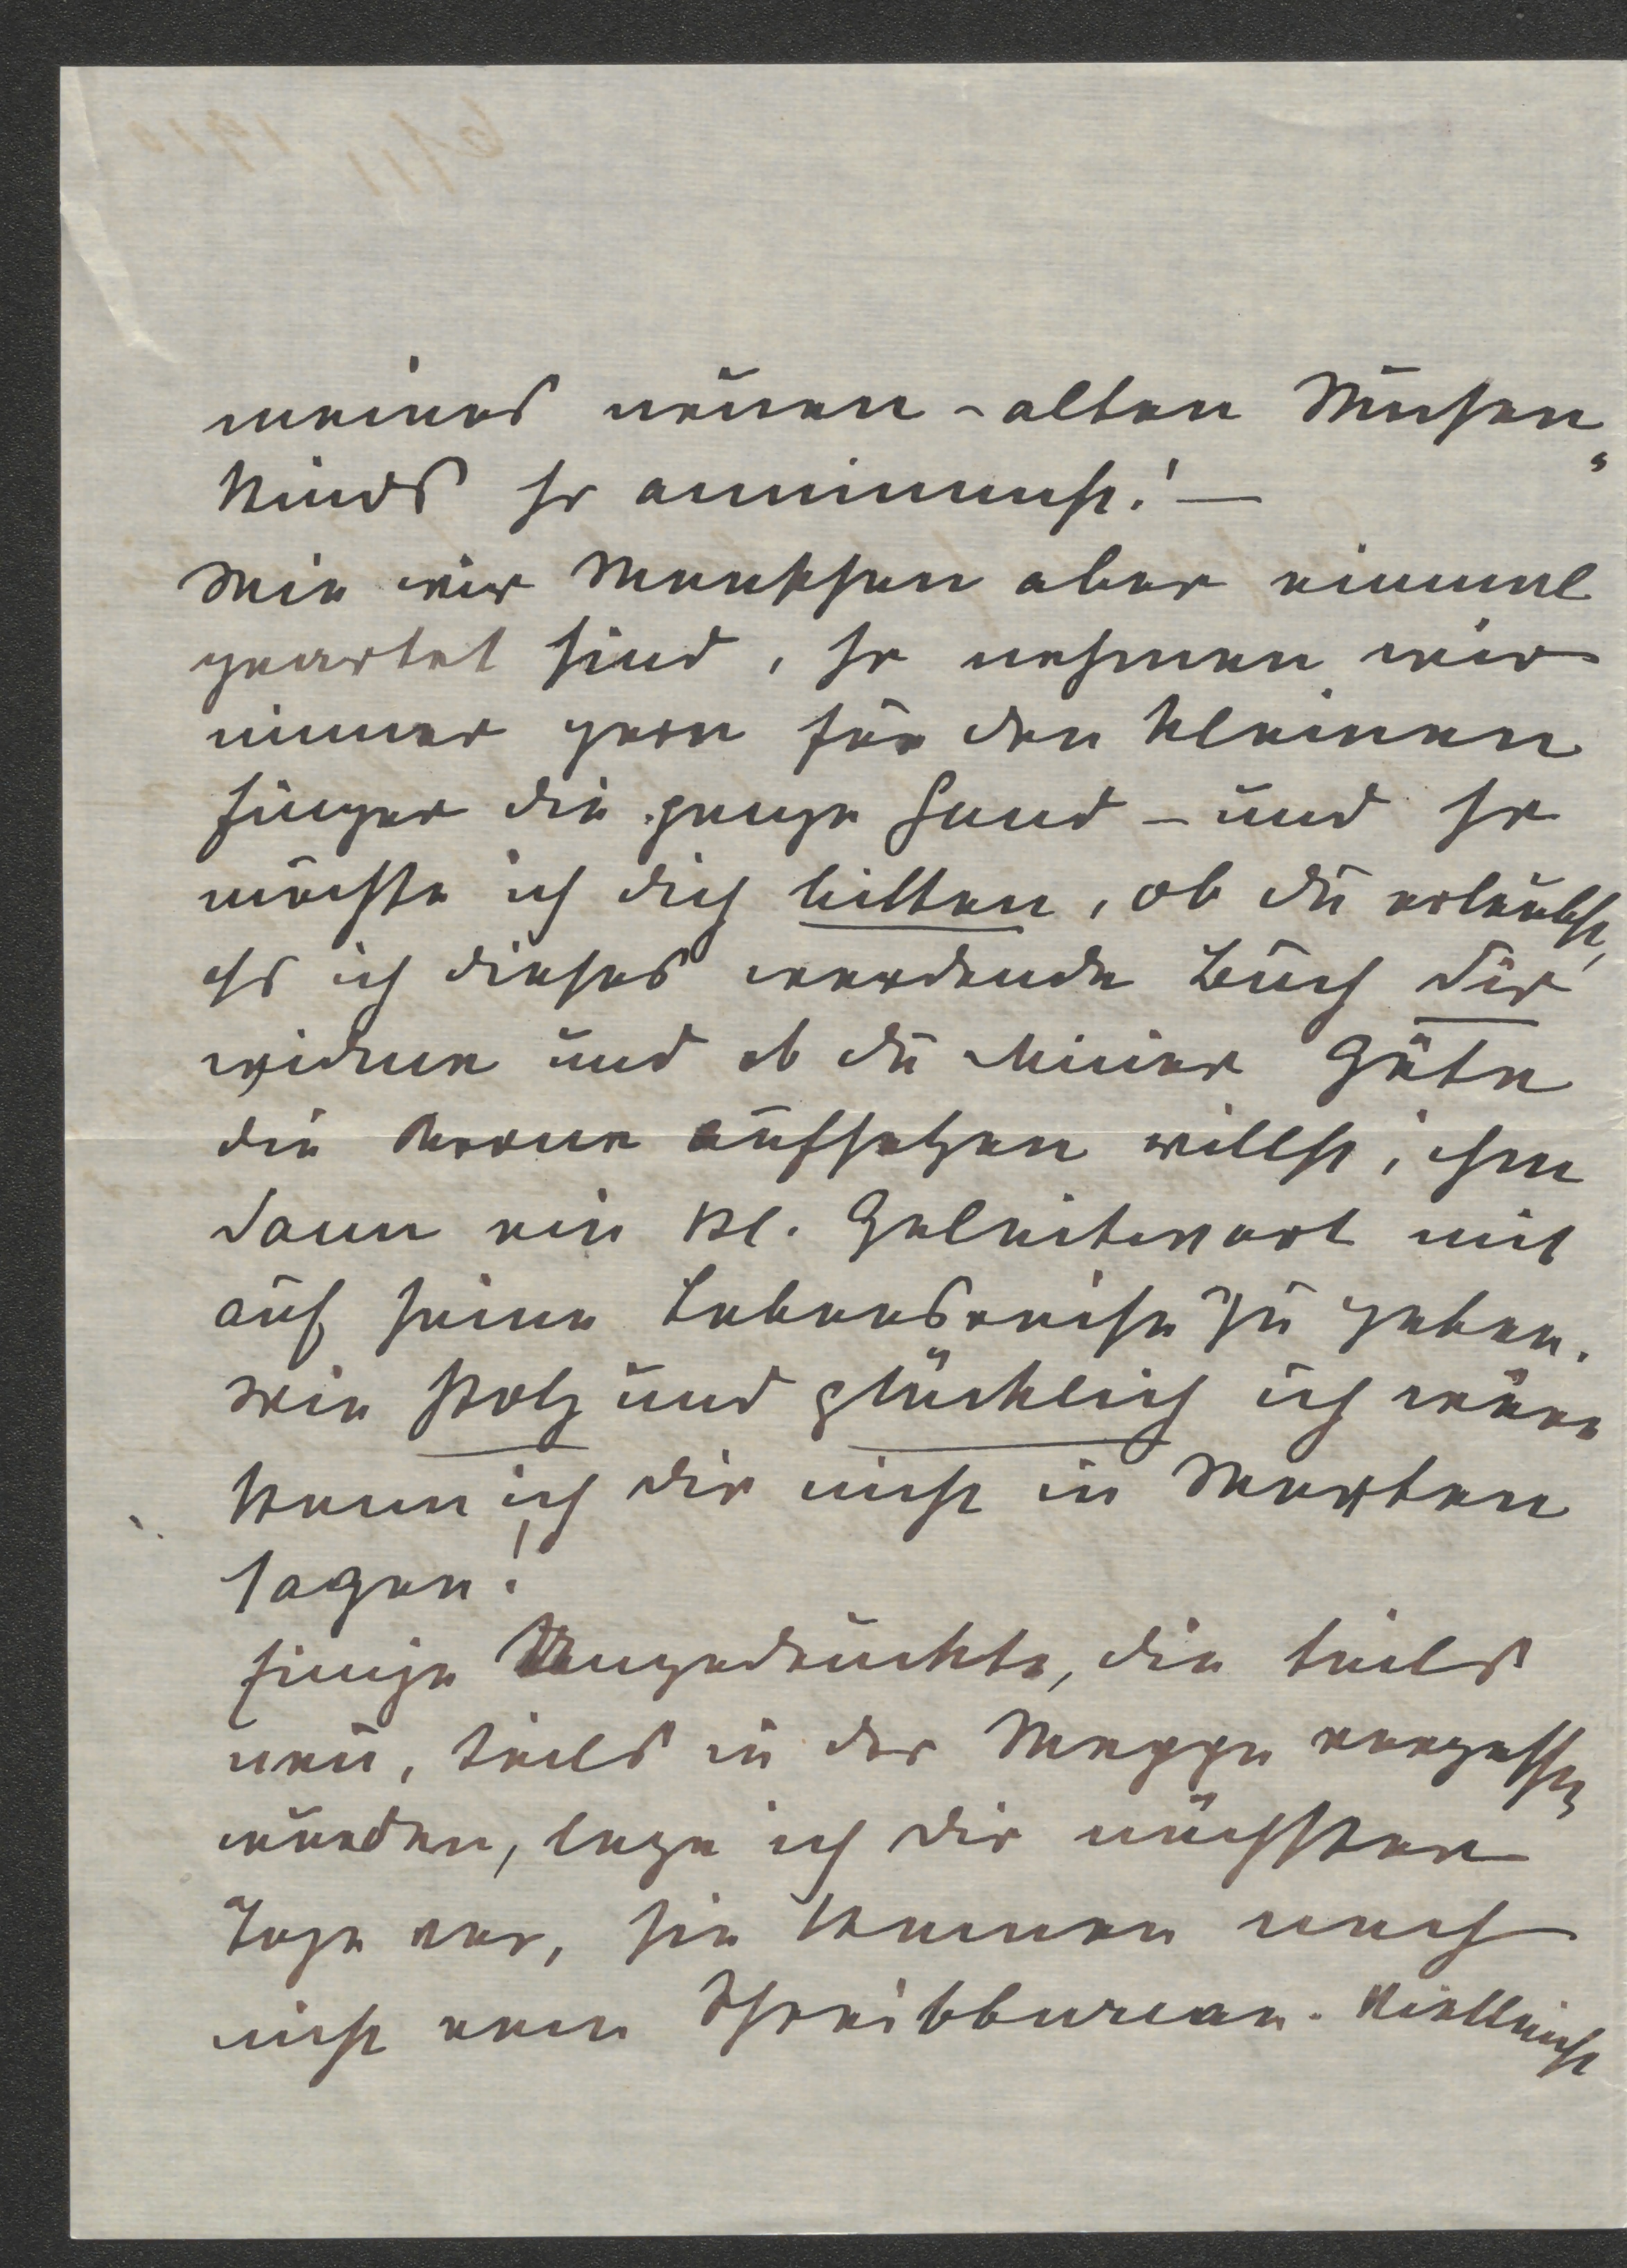 meines neuen-alten Musen-
kinds so annimmst! —
Wie wir Menschen aber einmal
geartet sind, so nehmen wir
immer gern für den kleinen
Finger die ganze Hand – und so
möchte ich dich bitten, ob du erlaubst,
ds ich dieses werdende Buch Dir
widme und ob du deiner Güte
die Krone aufsetzen willst, ihm
dann ein kl. Geleitwort mit
auf seine Lebensreise zu geben.
Wie stolz und glücklich ich wäre
kann ich dir nicht in Worten
sagen!
Einige Ungedruckte, die teils
neu, teils in der Mappe vergessen
wurden, lege ich dir nächster
Tage vor, sie kamen noch
nicht vom Schreibbureau. Vielleicht